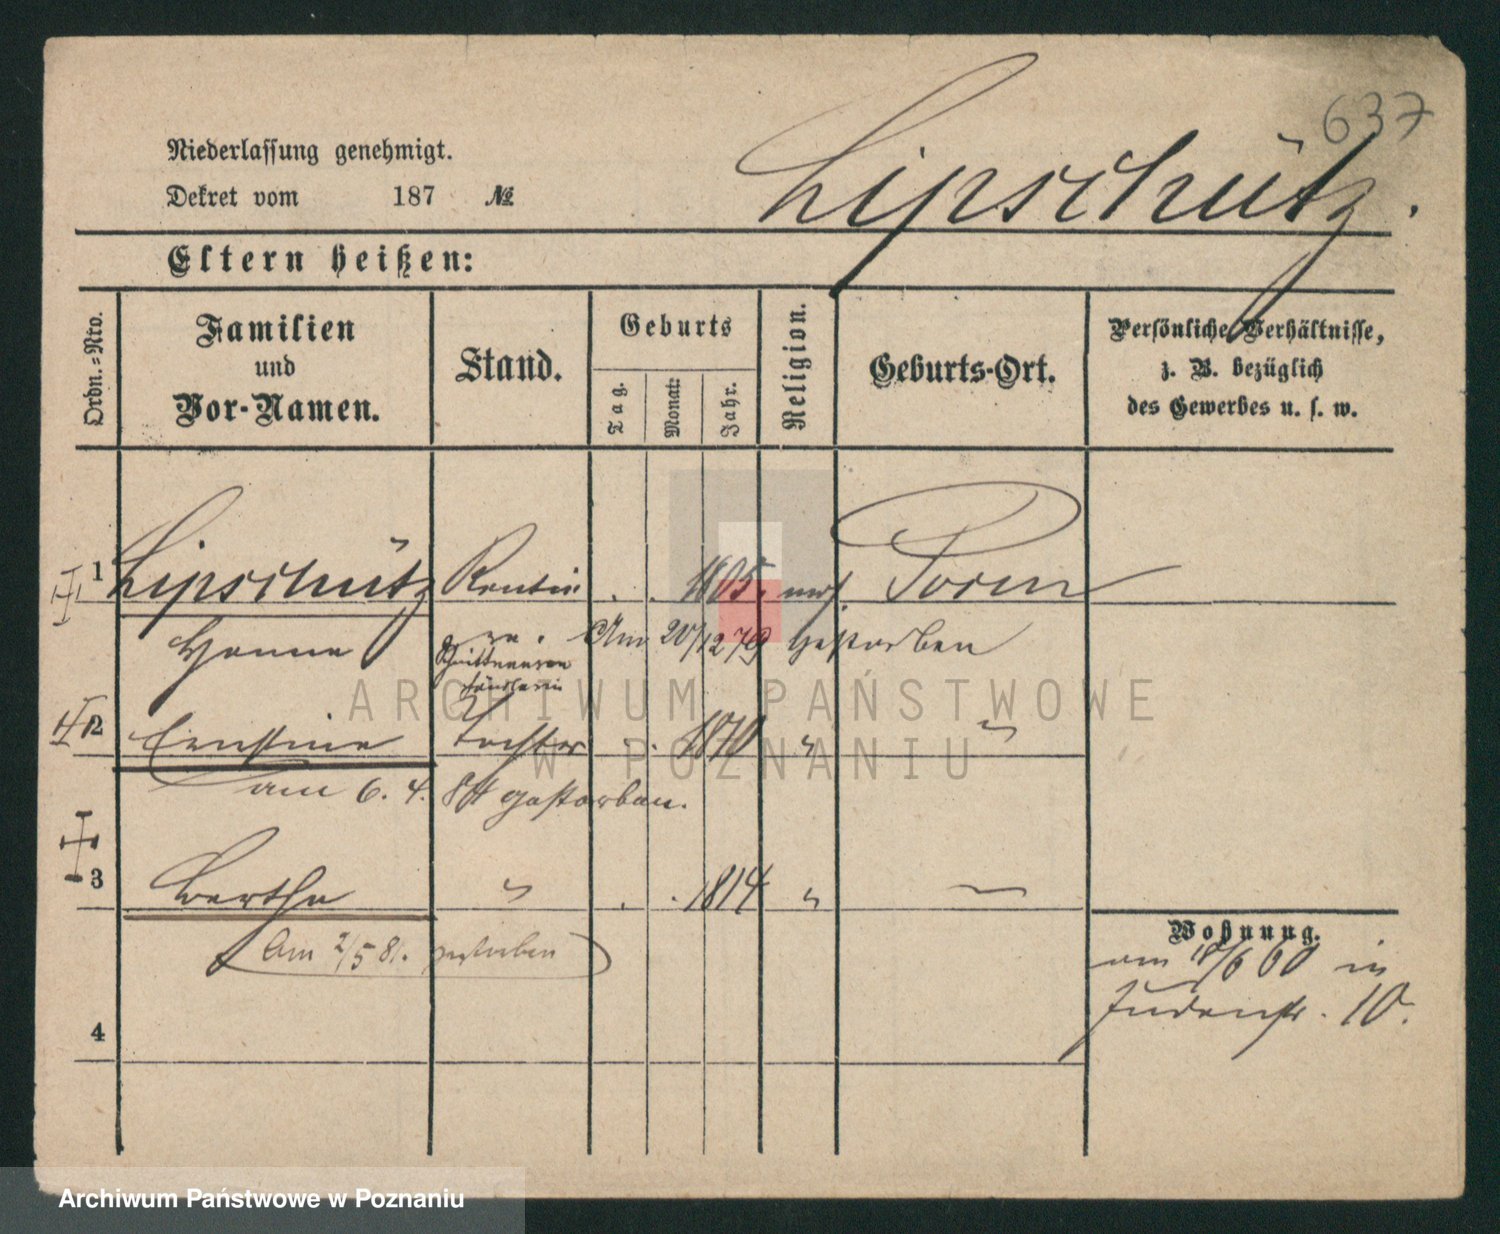 637
Lipschütz.
Niederlassung genehmigt.
Dekret vom 187 №
Eltern heißen:
Ordn.=Nro.
Familien
und
Vor-Namen.
Stand.
Geburts
Tag.
Monat.
Jahr.
Religion.
Geburts-Ort.
Persönliche Verhältnisse,
z. B. bezüglich
des Gewerbes u. s. w.
1 Lipschütz Rentiere . . 1805. mos. Posen
Hanne Am 20/12 79 gestorben
Schnittwaaren
händlerin
2 Ernstine Tochter . . 1810 "  "
am 6. 4. gestorben.
3 Berthe " . . 1814 " "
Am 2/5 81. gestorben
4
Wohnung.
am /6 60 in
Judenstr. 10.
ARCHIWUM PAŃSTWOWE
W POZNANIU
Archiwum Państwowe w Poznaniu